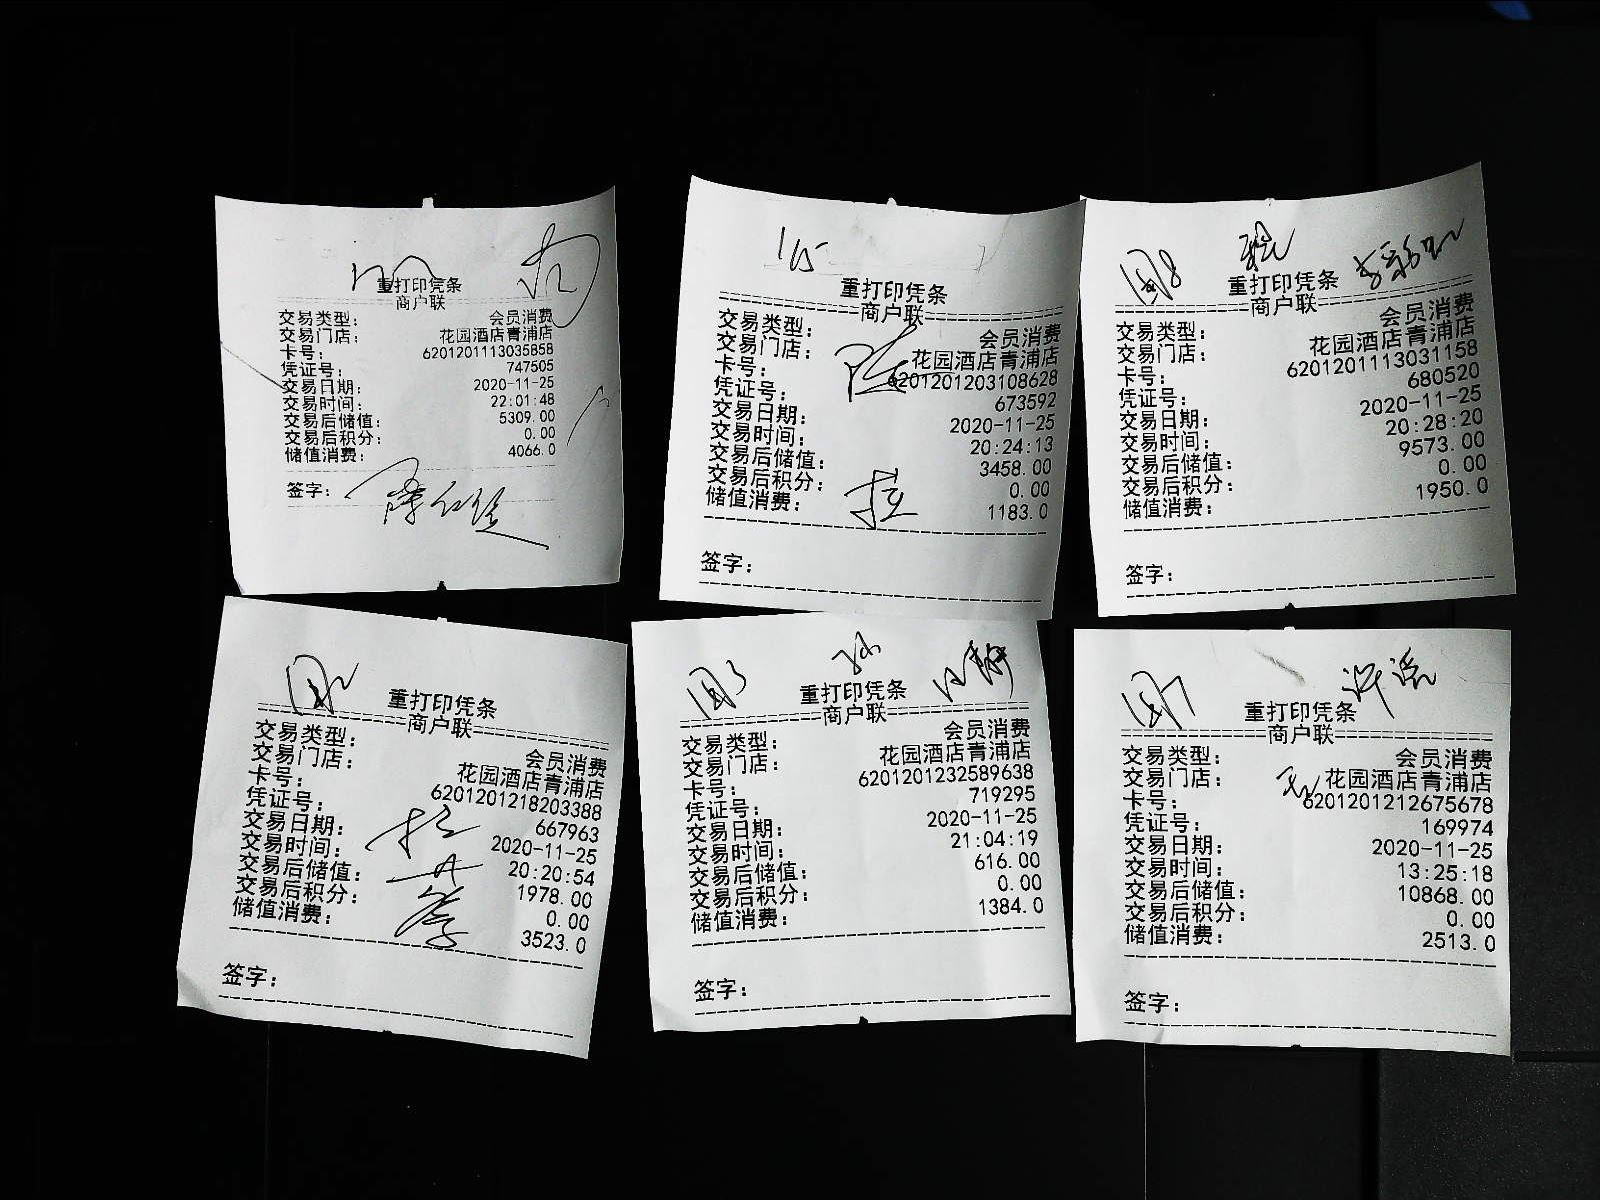 重打印凭条
商户联
交易类型： 会员消费
交易门店： 花园酒店青浦店
卡号： 6201201113035858
凭证号： 747505
交易日期： 2020-11-25
交易时间： 22:01:48
交易后储值： 5309.00
交易后积分： 0.00
储值消费： 4066.0
签字：
165
重打印凭条
商户联
交易类型： 会员消费
交易门店： 花园酒店青浦店
卡号： 6201201203108628
凭证号： 673592
交易日期： 2020-11-25
交易时间： 20:24:13
交易后储值： 3458.00
交易后积分： 0.00
储值消费： 1183.0
签字：
重打印凭条
商户联
交易类型： 会员消费
交易门店： 花园酒店青浦店
卡号： 6201201113031158
凭证号： 680520
交易日期： 2020-11-25
交易时间： 20:28:20
交易后储值： 9573.00
交易后积分： 0.00
储值消费： 1950.0
签字：
重打印凭条
商户联
交易类型： 会员消费
交易门店： 花园酒店青浦店
卡号： 6201201218203388
凭证号： 667963
交易日期： 2020-11-25
交易时间： 20:20:54
交易后储值： 1978.00
交易后积分： 0.00
储值消费： 3523.0
签字：
重打印凭条
商户联
交易类型： 会员消费
交易门店： 花园酒店青浦店
卡号： 6201201232589638
凭证号： 719295
交易日期： 2020-11-25
交易时间： 21:04:19
交易后储值： 616.00
交易后积分： 0.00
储值消费： 1384.0
签字：
重打印凭条
商户联
交易类型： 会员消费
交易门店： 花园酒店青浦店
卡号： 6201201212675678
凭证号： 169974
交易日期： 2020-11-25
交易时间： 13:25:18
交易后储值： 10868.00
交易后积分： 0.00
储值消费： 2513.0
签字：